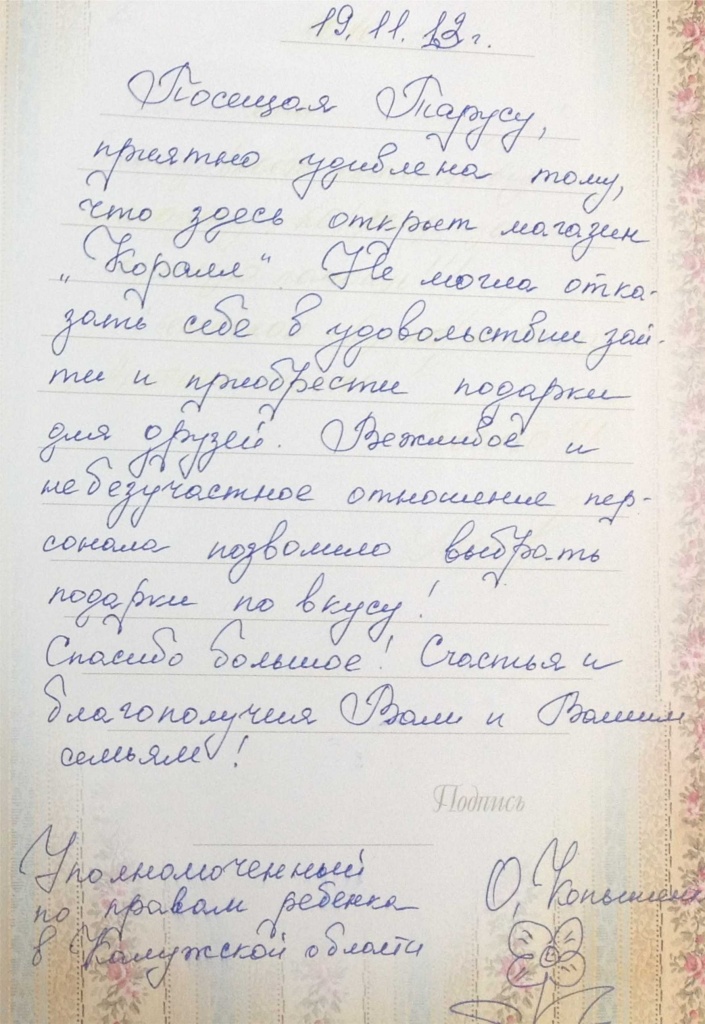 19.11.12г.
Посещая Тарусу,
приятно удивлена тому,
что здесь открыт магазин
„Коралл“. Не могла отка-
зать себе в удовольствии зай-
ти и приобрести подарки
для друзей. Вежливое и
небезучастное отношение пер-
сонала позволило выбрать
подарки по вкусу!
Спасибо большое! Счастья и
благополучия Вам и Вашим
семьям!
Подпись
Уполномоченный
по правам ребенка
в Калужской области
О.